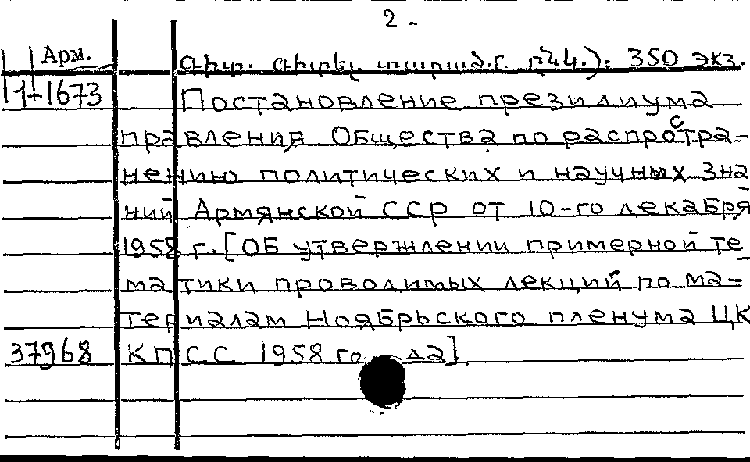 2.
Арм.
Գիտ. Գիտել. տարած. ընկ.): 350 экз.
11-1673 Постановление президиума
правления Общества по распростра-
нению политических и научных зна
ний Армянской ССР от 10-го декабря
1958 г. [Об утверждении примерной те
матики проводимых лекций по ма-
териалам Ноябрьского пленума ЦК
37968 КПСС 1958 года].